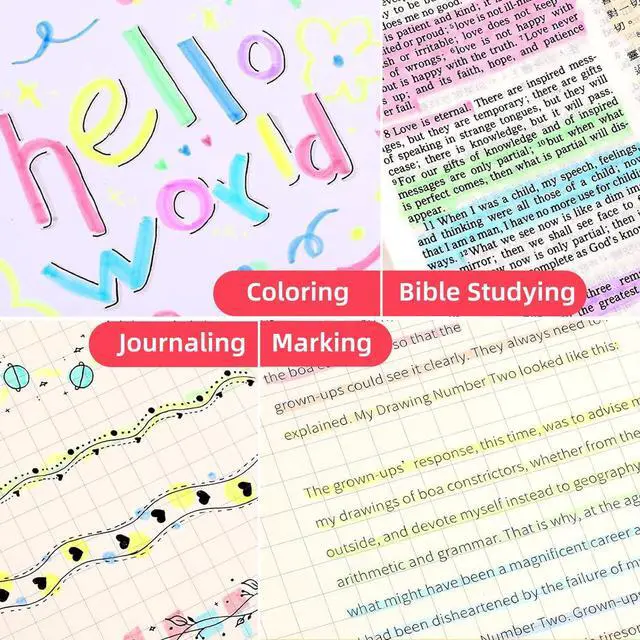 hello
world
s patient and kind; it
ed or proud; 5love is not ill-
sh or irritable; love does not keep
of wrongs; 6love is not happy with
but is happy with the truth. 7Love never
s up; and its faith, hope, and patience
er fail.
8 Love is eternal. There are inspired mess-
ages, but they are temporary; there are gifts
of speaking in strange tongues, but they will
cease; there is knowledge, but it will pass.
9For our gifts of knowledge and of inspired
messages are only partial; 10but when what
is perfect comes, then what is partial will dis-
appear.
11 When I was a child, my speech, feelings,
and thinking were all those of a child;
that I am a man, I have no more use for child
ways. 12What we see now is like a dim
mirror; then we shall see face to
now is only partial; then
complete as God's
three
the greatest
Coloring
Bible Studying
Journaling
Marking
so that the
the boa
grown-ups could see it clearly. They always need to
explained. My Drawing Number Two looked like this:
The grown-ups' response, this time, was to advise m
my drawings of boa constrictors, whether from the
outside, and devote myself instead to geography
arithmetic and grammar. That is why, at the ag
what might have been a magnificent career a
had been disheartened by the failure of m
Number Two. Grown-up